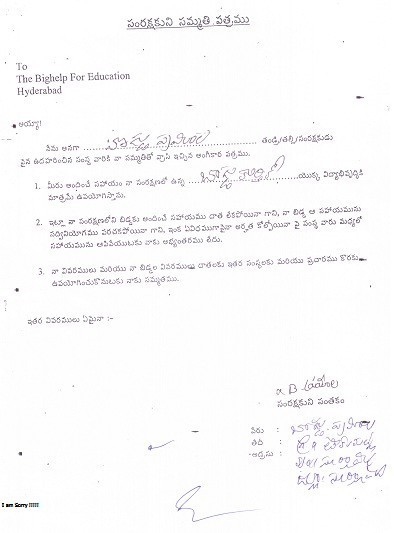 సంరక్షకుని సమ్మతి పత్రము
To
The Bighelp For Education
Hyderabad
అయ్యా!
నేను అనగా ........ తండ్రి/తల్లి/సంరక్షకుడు
పైన ఉదహరించిన సంస్థ వారికి నా సమ్మతితో వ్రాసి ఇచ్చిన అంగీకార పత్రము.
1. మీరు అందించే సహాయం నా సంరక్షణలో ఉన్న ........ యొక్క విద్యాభివృద్ధికి
మాత్రమే ఉపయోగిస్తాను.
2. ఇట్లా నా సంరక్షణలోని బిడ్డకు అందించే సహాయము దాత లేకపోయినా గాని, నా బిడ్డ ఆ సహాయమును
సద్వినియోగము పరచకపోయినా గాని, ఇంక ఏవిధముగానైనా అర్హత కోల్పోయినా పై సంస్థ వారు మధ్యలో
సహాయమును ఆపివేయుటకు నాకు అభ్యంతరము లేదు.
3. నా వివరములు మరియు నా బిడ్డల వివరములు దాతలకు ఇతర సంస్థలకు మరియు ప్రచారము కొరకు
ఉపయోగించుకొనుటకు నాకు సమ్మతము.
ఇతర వివరములు ఏమైనా :-
సంరక్షకుని సంతకం
పేరు :
తేది :
అడ్రసు :
I am Sorry !!!!!